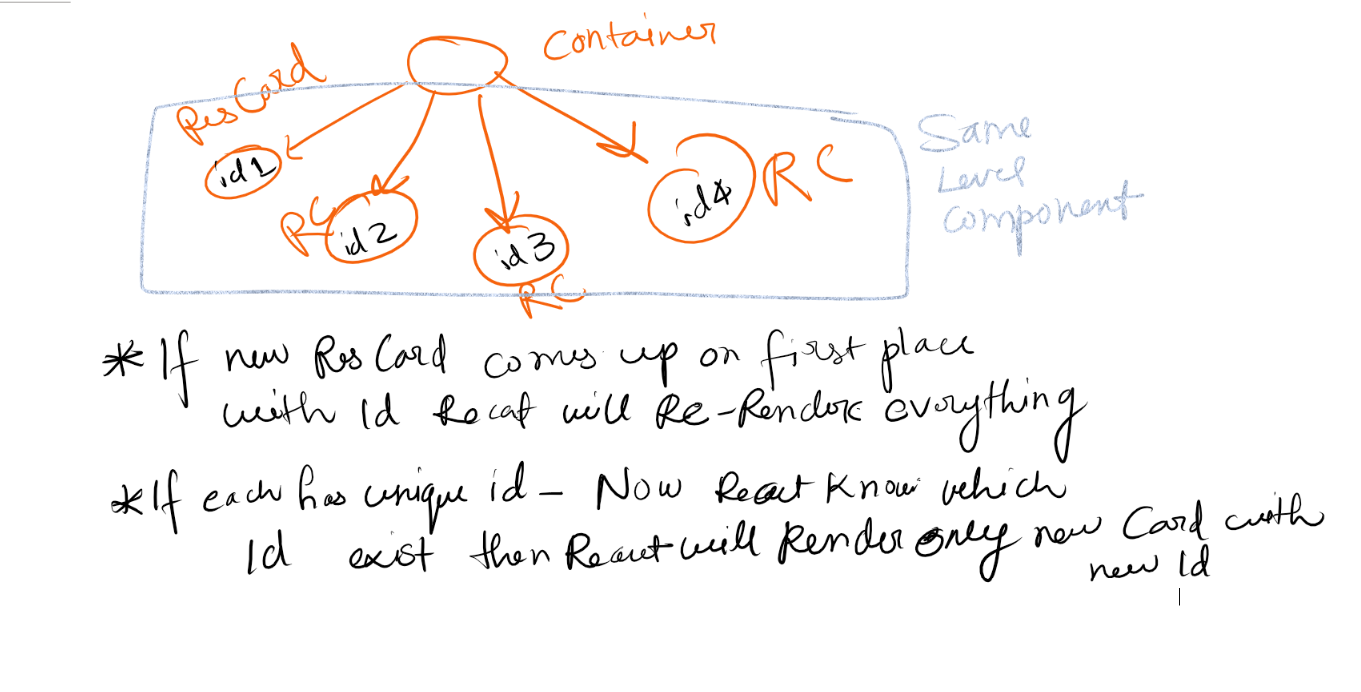 Container
ResCard
id1
RC
id2
id3
RC
id4
RC
Same
Level
Component
* If new Res Card comes up on first place
with Id React will Re-Render everything
* If each has unique id - Now React Know which
Id exist then React will Render only new Card with
new Id